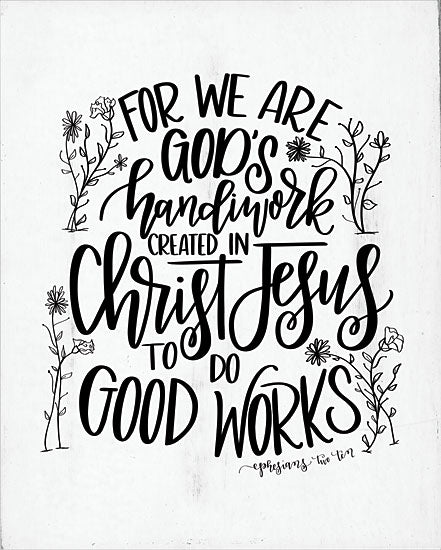 FOR WE ARE
GOD'S
handiwork
CREATED IN
Christ Jesus
TO DO
GOOD WORKS
ephesians two ten